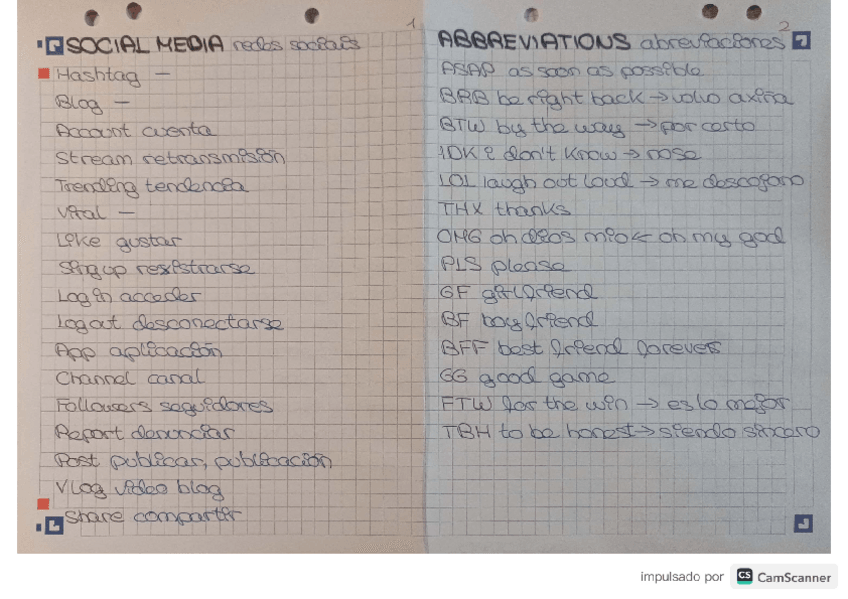 1
SOCIAL MEDIA redes sociais
Hashtag —
Blog —
Account cuenta
Stream retransmisión
Trending tendencia
Viral —
Like gustar
Sing up rexistrarse
Log in acceder
Log out desconectarse
App aplicación
Channel canal
Followers seguidores
Report denunciar
Post publicar, publicación
Vlog video blog
Share compartir
2
ABBREVIATIONS abreviaciones
ASAP as soon as possible
BRB be right back → volvo axiña
BTW by the way → por certo
IDK I don't know → nose
LOL laugh out loud → me descojono
THX thanks
OMG oh dios mio ← oh my god
PLS please
GF girlfriend
BF boyfriend
BFF best friend forevers
GG good game
FTW for the win → es lo mejor
TBH to be honest → siendo sincero
impulsado por CS CamScanner